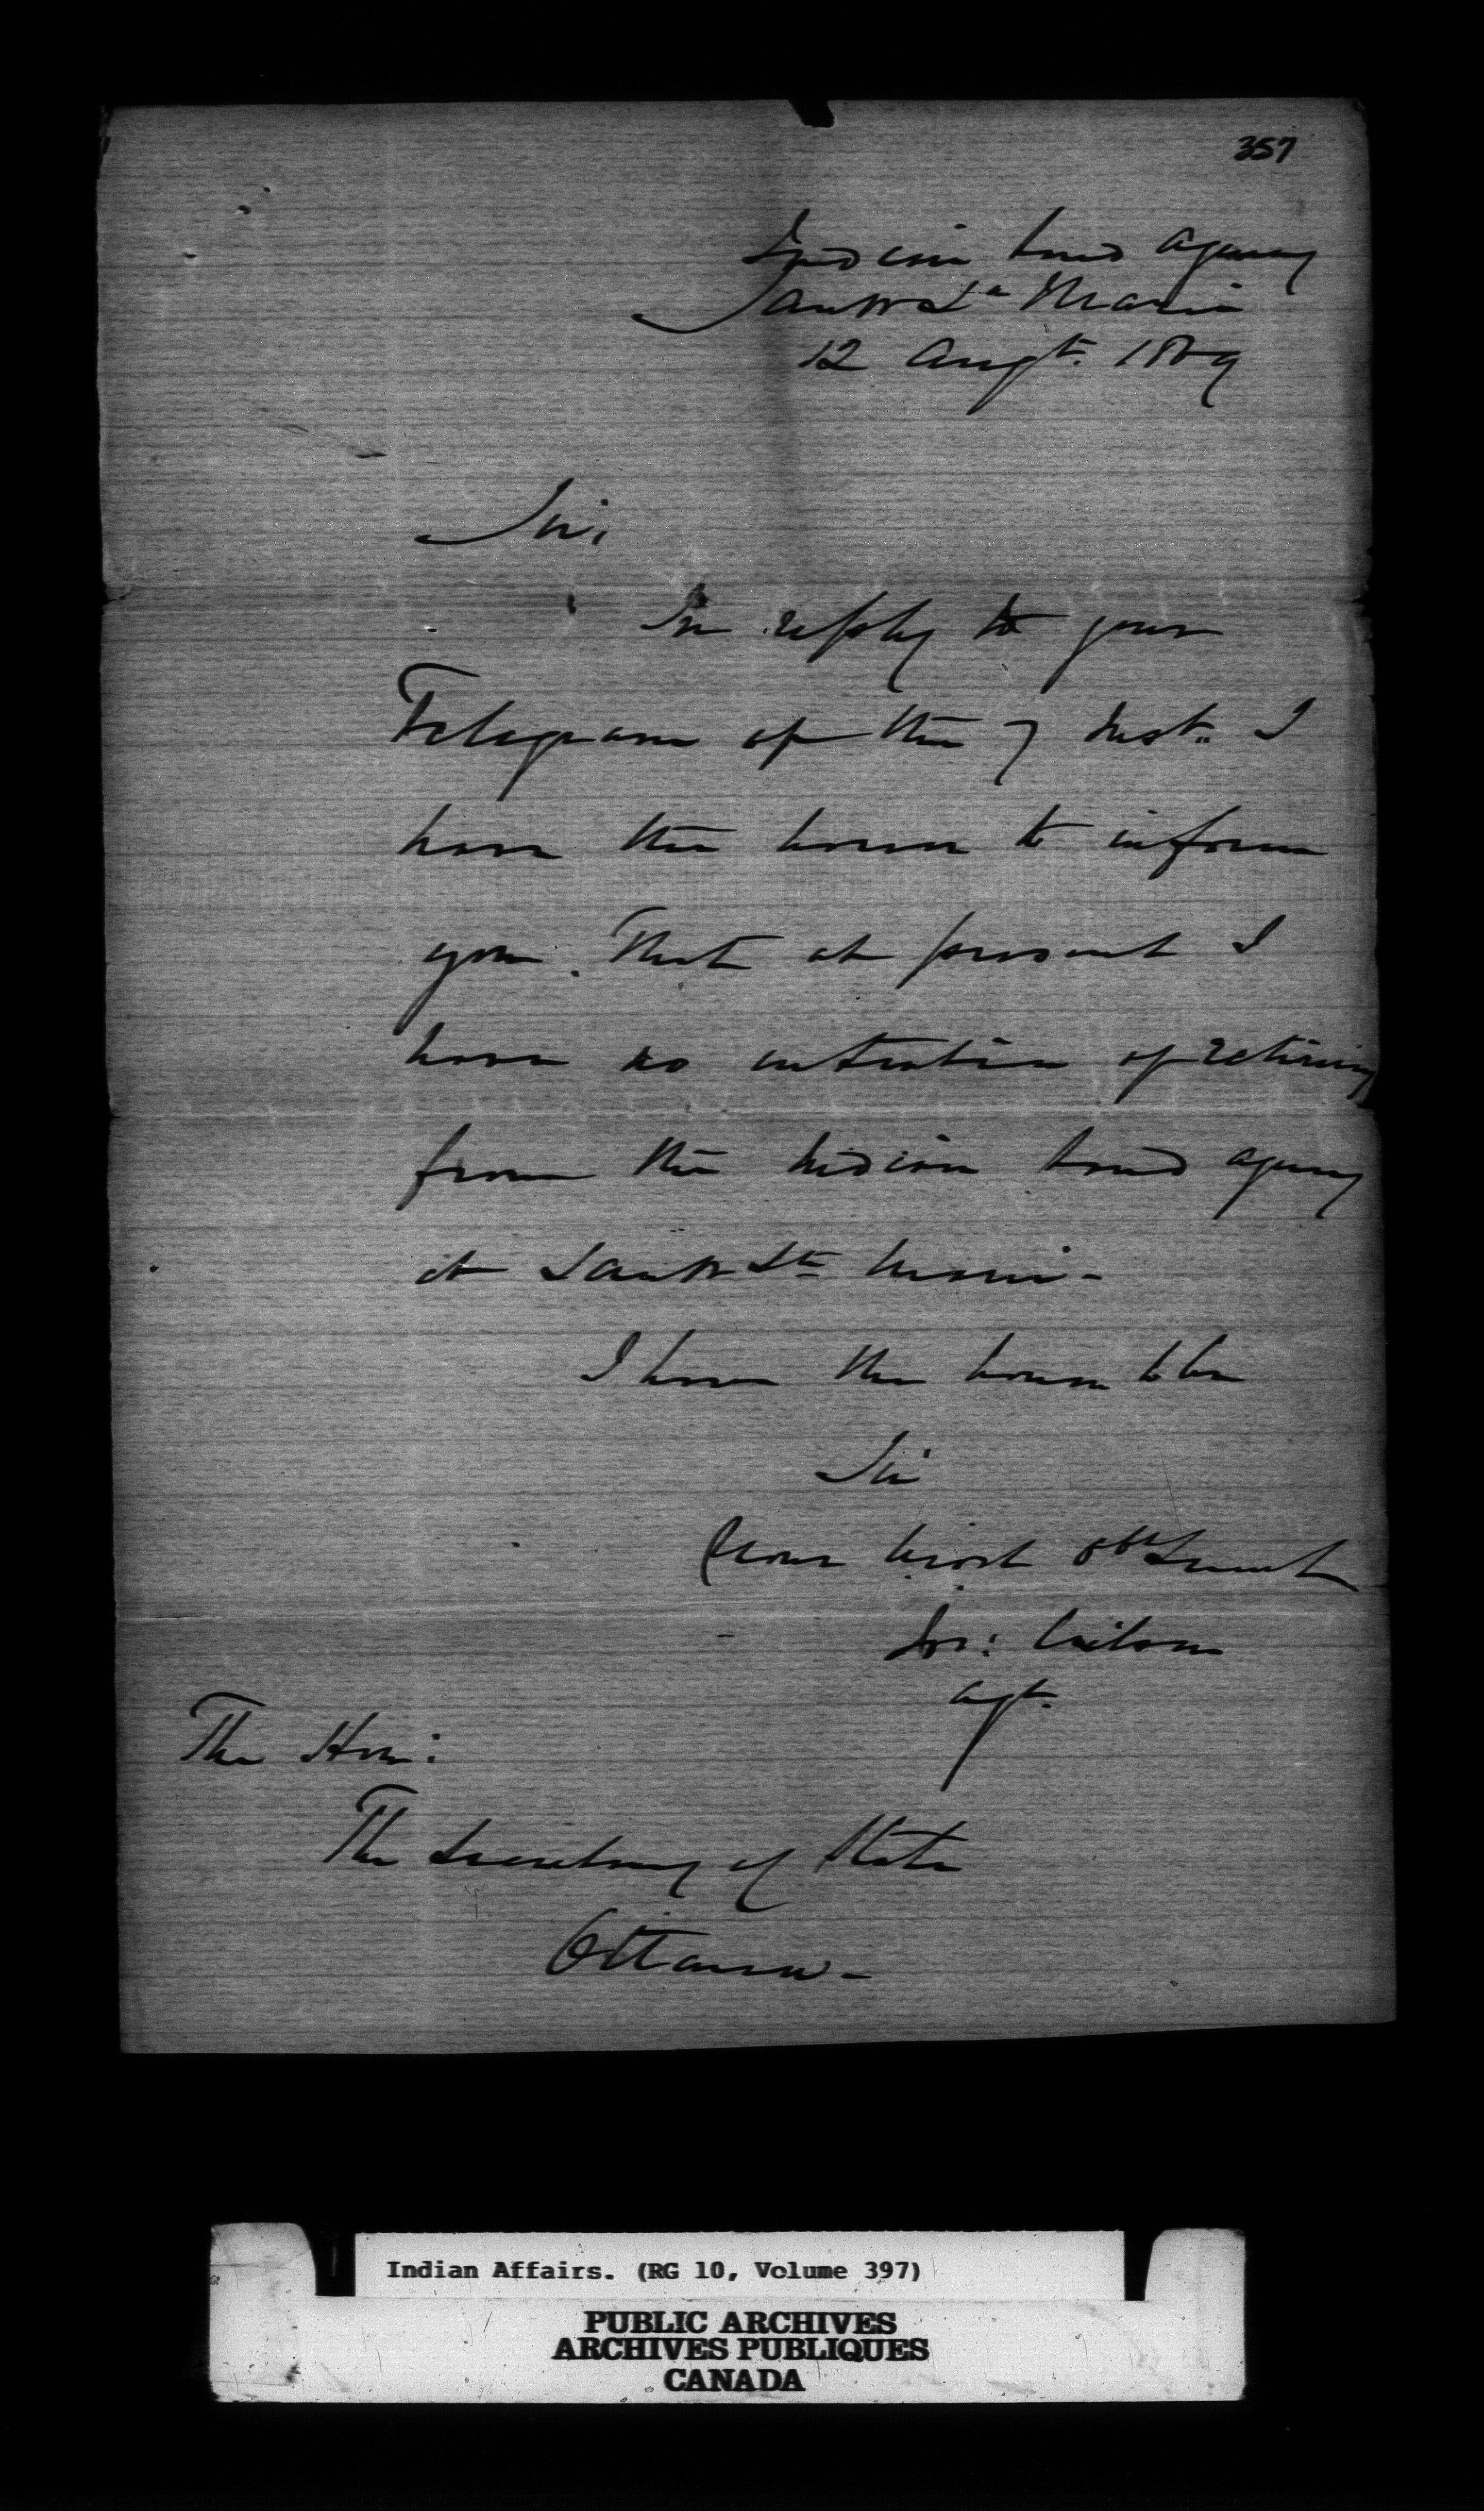 357
Indian Land Agency
Sault Ste Marie
12 Augt. 1869
Sir,
In reply to your
Telegram of the 7 Inst. I
have the honor to inform
you. That at present I
have no intention of retiring
from the Indian Land Agency
at Sault Ste Marie -
I have the honor to be
Sir
Your Most Obt Servant
Jos: Wilson
Agt.
The Hon:
The Secretary of State
Ottawa -
Indian Affairs. (RG 10, Volume 397)
PUBLIC ARCHIVES
ARCHIVES PUBLIQUES
CANADA